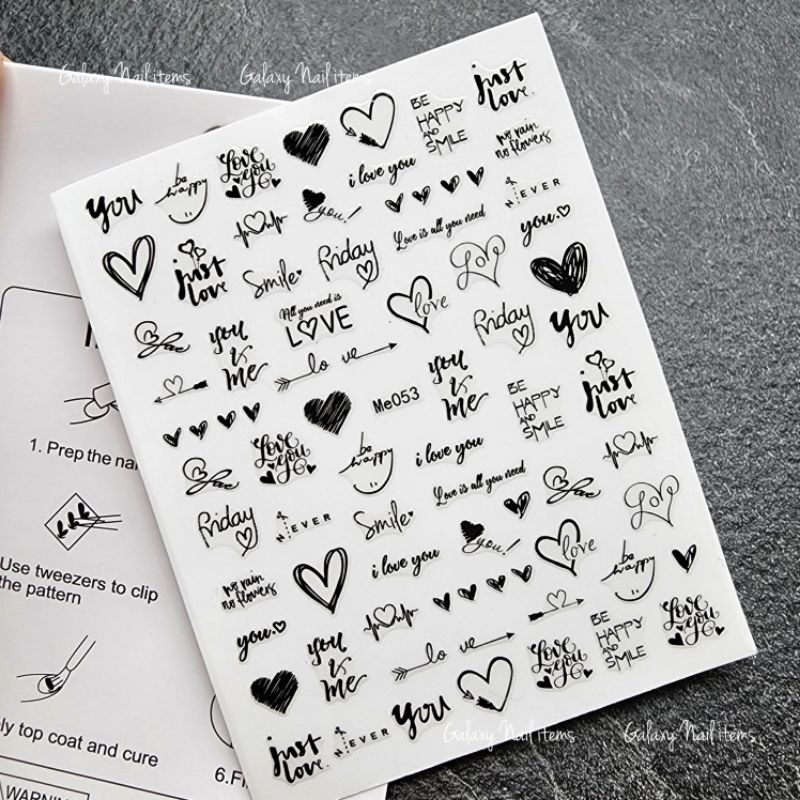 Galaxy Nail items
Galaxy Nail items
just
love.
BE
HAPPY
AND
SMILE
no rain
no flowers
i love you
Love
you
be
happy
you
you!
NEVER
you.
Love is all you need
Friday
Smile
just
love
Love
All you need is
LOVE
love
you
Friday
you
&
me
love
you
&
me
Me053
BE
HAPPY
AND
SMILE
just
love
Love
you
be
happy
i love you
Love is all you need
Friday
NEVER
Smile
you!
love
Love
be
happy
i love you
no rain
no flowers
you.
you
&
me
love
Love
you
BE
HAPPY
AND
SMILE
Love
you
just
love.
NEVER
you
Galaxy Nail items
Galaxy Nail items
1. Prep the nai
Use tweezers to clip
the pattern
ly top coat and cure
6.FI
WARNING